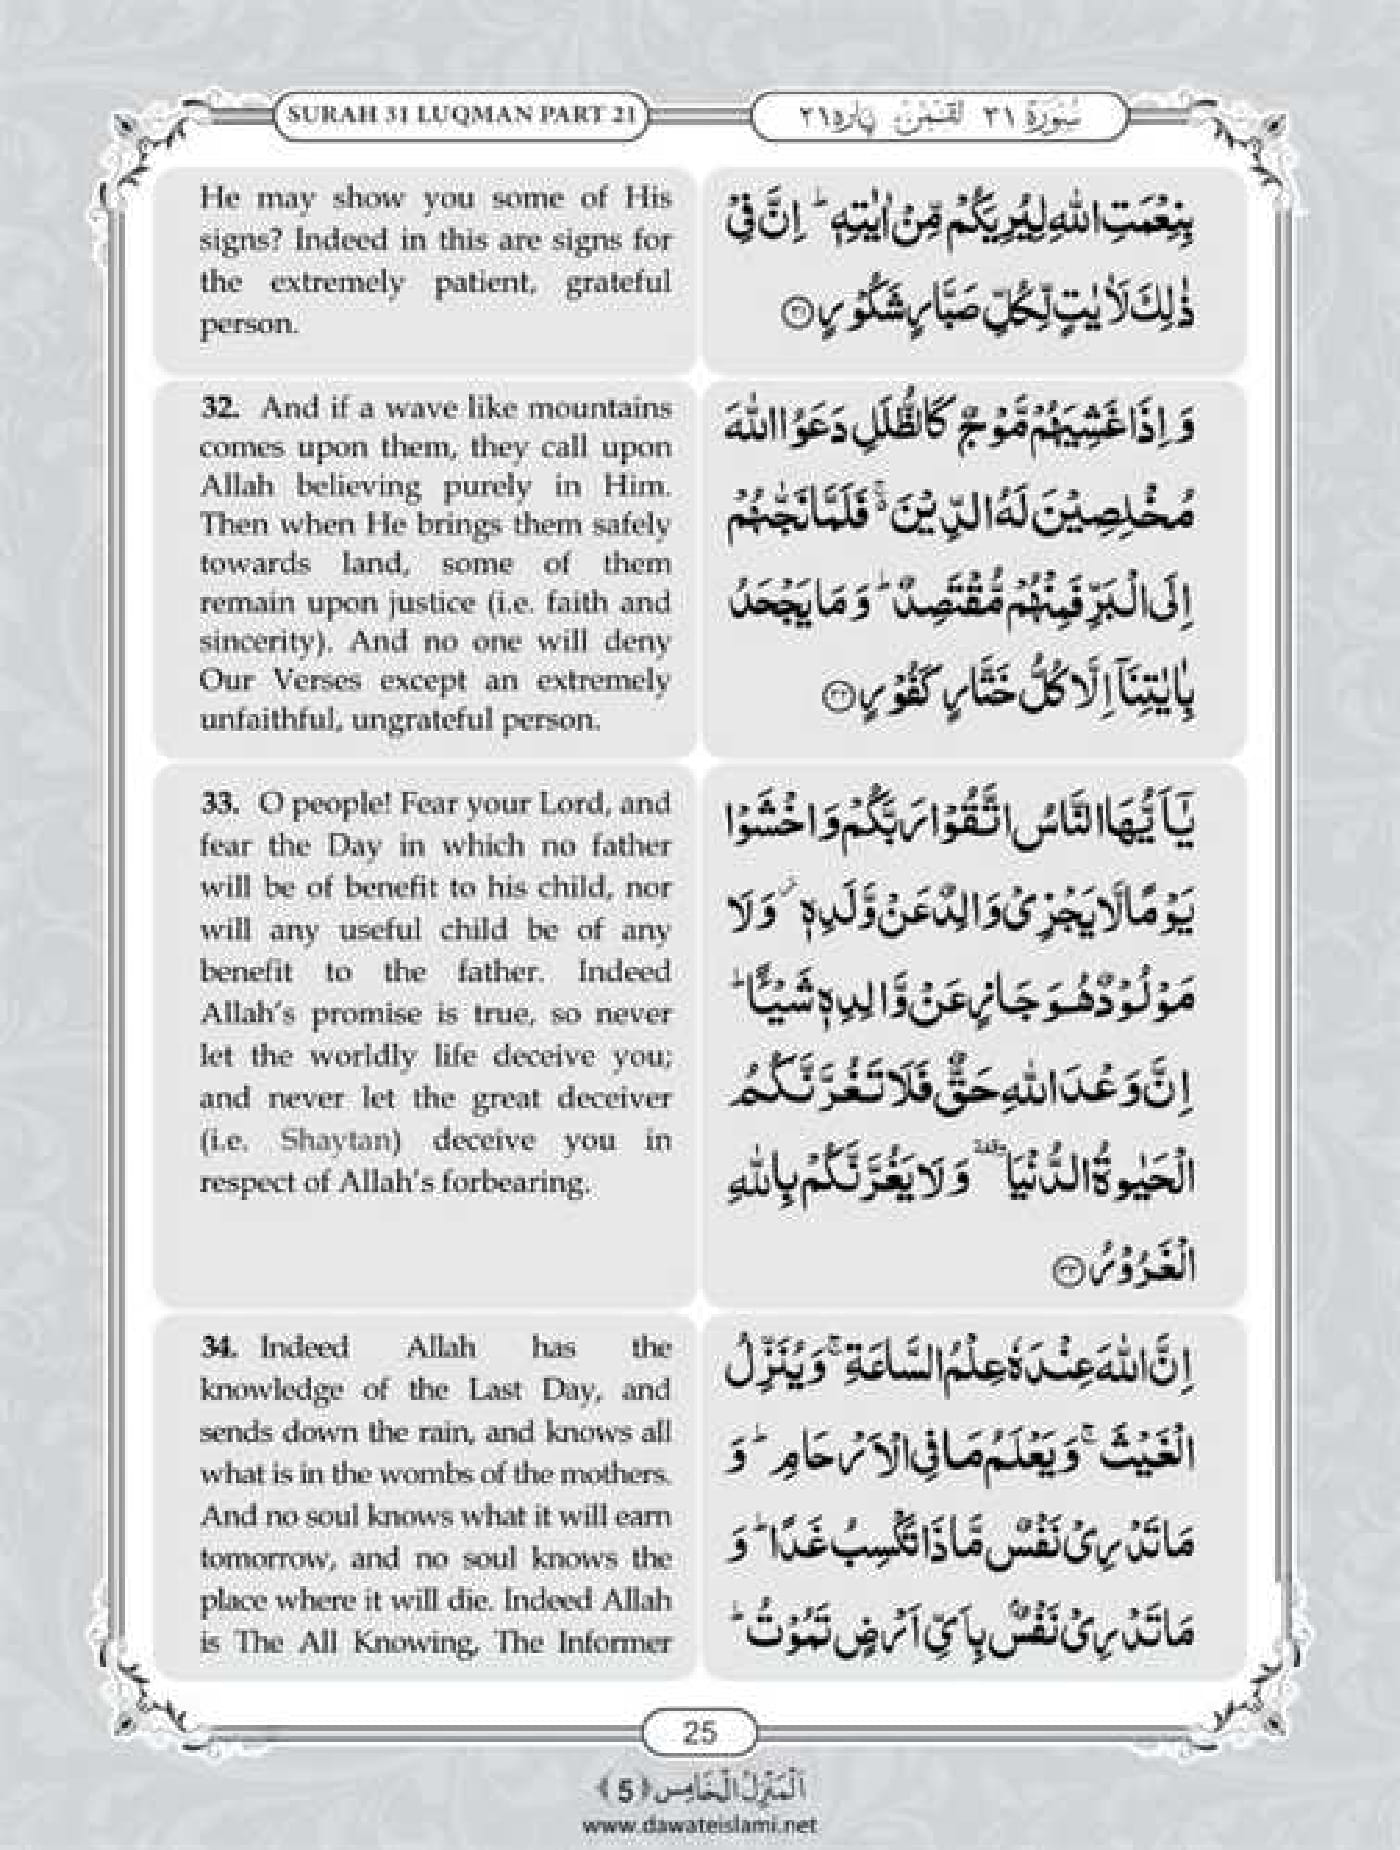 SURAH 31 LUQMAN PART 21
سُوْرَةُ ٣١ لُقْمٰن پاره ٢١
He may show you some of His
signs? Indeed in this are signs for
the extremely patient, grateful
person.
بِنِعْمَتِ اللّٰهِ لِيُرِيَكُمْ مِّنْ اٰيٰتِهٖ ؕ اِنَّ فِيْ
ذٰلِكَ لَاٰيٰتٍ لِّكُلِّ صَبَّارٍ شَكُوْرٍ ﴿٣١﴾
32. And if a wave like mountains
comes upon them, they call upon
Allah believing purely in Him.
Then when He brings them safely
towards land, some of them
remain upon justice (i.e. faith and
sincerity). And no one will deny
Our Verses except an extremely
unfaithful, ungrateful person.
وَ اِذَا غَشِيَهُمْ مَّوْجٌ كَالظُّلَلِ دَعَوُا اللّٰهَ
مُخْلِصِيْنَ لَهُ الدِّيْنَ ۚ۬ فَلَمَّا نَجّٰىهُمْ
اِلَى الْبَرِّ فَمِنْهُمْ مُّقْتَصِدٌ ؕ وَ مَا يَجْحَدُ
بِاٰيٰتِنَاۤ اِلَّا كُلُّ خَتَّارٍ كَفُوْرٍ ﴿٣٢﴾
33. O people! Fear your Lord, and
fear the Day in which no father
will be of benefit to his child, nor
will any useful child be of any
benefit to the father. Indeed
Allah's promise is true, so never
let the worldly life deceive you;
and never let the great deceiver
(i.e. Shaytan) deceive you in
respect of Allah's forbearing.
يٰۤاَيُّهَا النَّاسُ اتَّقُوْا رَبَّكُمْ وَ اخْشَوْا
يَوْمًا لَّا يَجْزِيْ وَالِدٌ عَنْ وَّلَدِهٖ ۫ وَ لَا
مَوْلُوْدٌ هُوَ جَازٍ عَنْ وَّالِدِهٖ شَيْـًٔا ؕ
اِنَّ وَعْدَ اللّٰهِ حَقٌّ فَلَا تَغُرَّنَّكُمُ
الْحَيٰوةُ الدُّنْيَا ۥ وَ لَا يَغُرَّنَّكُمْ بِاللّٰهِ
الْغَرُوْرُ ﴿٣٣﴾
34. Indeed Allah has the
knowledge of the Last Day, and
sends down the rain, and knows all
what is in the wombs of the mothers.
And no soul knows what it will earn
tomorrow, and no soul knows the
place where it will die. Indeed Allah
is The All Knowing, The Informer
اِنَّ اللّٰهَ عِنْدَهٗ عِلْمُ السَّاعَةِ ۚ وَ يُنَزِّلُ
الْغَيْثَ ۚ وَ يَعْلَمُ مَا فِي الْاَرْحَامِ ؕ وَ
مَا تَدْرِيْ نَفْسٌ مَّا ذَا تَكْسِبُ غَدًا ؕ وَ
مَا تَدْرِيْ نَفْسٌۢ بِاَيِّ اَرْضٍ تَمُوْتُ ؕ
25
اَلْمَنْزِلُ الْخَامِس ﴿5﴾
www.dawateislami.net